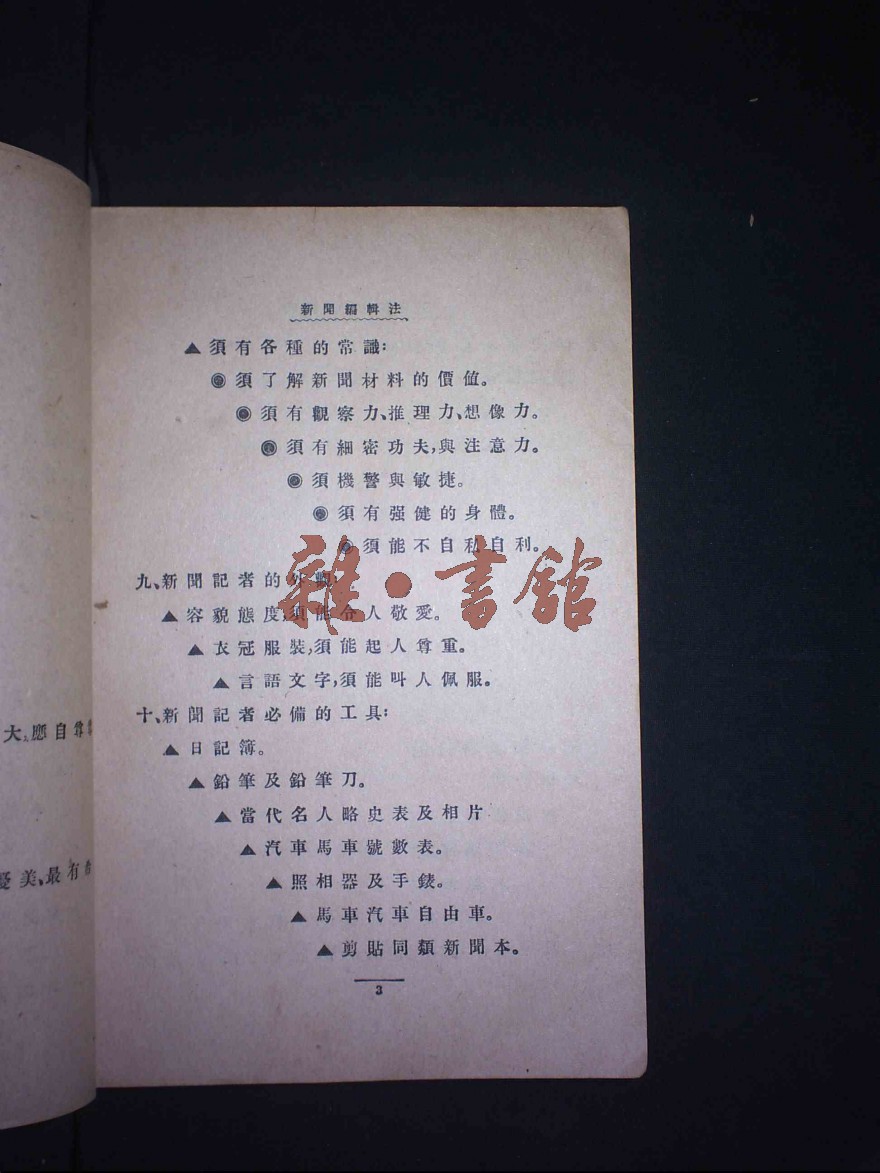 新聞編輯法
▲須有各種的常識：
◉須了解新聞材料的價值。
◉須有觀察力、推理力、想像力。
◉須有細密功夫，與注意力。
◉須機警與敏捷。
◉須有强健的身體。
◉須能不自私自利。
九、新聞記者的外觀：
▲容貌態度，須能令人敬愛。
▲衣冠服裝，須能起人尊重。
▲言語文字，須能叫人佩服。
十、新聞記者必備的工具：
▲日記簿。
▲鉛筆及鉛筆刀。
▲當代名人略史表及相片
▲汽車馬車號數表。
▲照相器及手錶。
▲馬車汽車自由車。
▲剪貼同類新聞本。
3
大、應自尊
美、最有
雜·書館